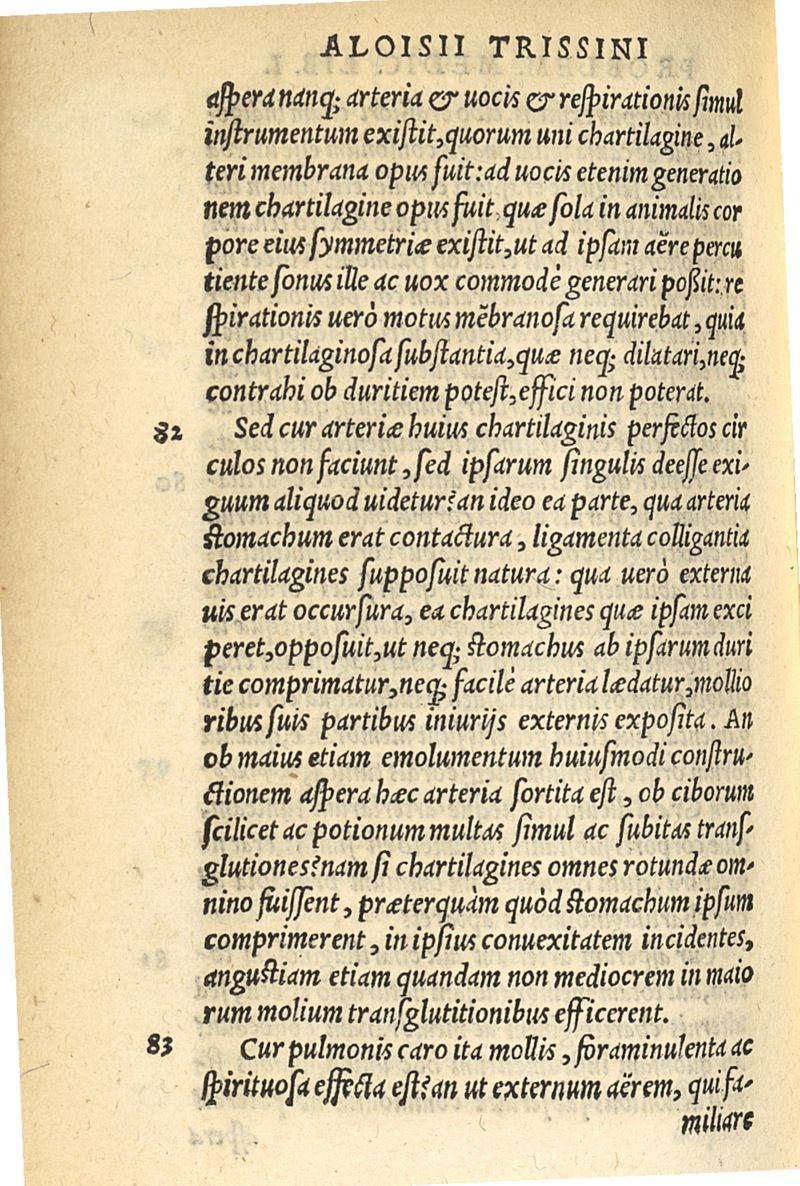 ALOISII TRISSINI
aſpera nanq; arteria & uocis & reſpirationis ſimul
inſtrumentum exiſtit, quorum uni chartilagine, al-
teri membrana opus fuit: ad uocis etenim generatio
nem chartilagine opus fuit, quæ ſola in animalis cor
pore eius ſymmetriæ exiſtit, ut ad ipſam aëre percu
tiente ſonus ille ac uox commodè generari poßit: re
ſpirationis uerò motus mẽbranoſa requirebat, quia
in chartilaginoſa ſubſtantia, quæ neq; dilatari, neq;
contrahi ob duritiem poteſt, effici non poterat.
82 Sed cur arteriæ huius chartilaginis perfectos cir
culos non faciunt, ſed ipſarum ſingulis deeſſe exi-
guum aliquod uidetur? an ideo ea parte, qua arteria
ſtomachum erat contactura, ligamenta colligantia
chartilagines ſuppoſuit natura: qua uerò externa
uis erat occurſura, ea chartilagines quæ ipſam exci
peret, oppoſuit, ut neq; ſtomachus ab ipſarum duri
tie comprimatur, neq; facilè arteria lædatur, mollio
ribus ſuis partibus iniurijs externis expoſita. An
ob maius etiam emolumentum huiuſmodi conſtru-
ctionem aſpera hæc arteria ſortita eſt, ob ciborum
ſcilicet ac potionum multas ſimul ac ſubitas tranſ-
glutiones? nam ſi chartilagines omnes rotundæ om-
nino fuiſſent, præterquàm quòd ſtomachum ipſum
comprimerent, in ipſius conuexitatem incidentes,
anguſtiam etiam quandam non mediocrem in maio
rum molium tranſglutitionibus efficerent.
83 Cur pulmonis caro ita mollis, foraminulenta ac
ſpirituoſa effecta eſt? an ut externum aërem, qui fa-
miliare